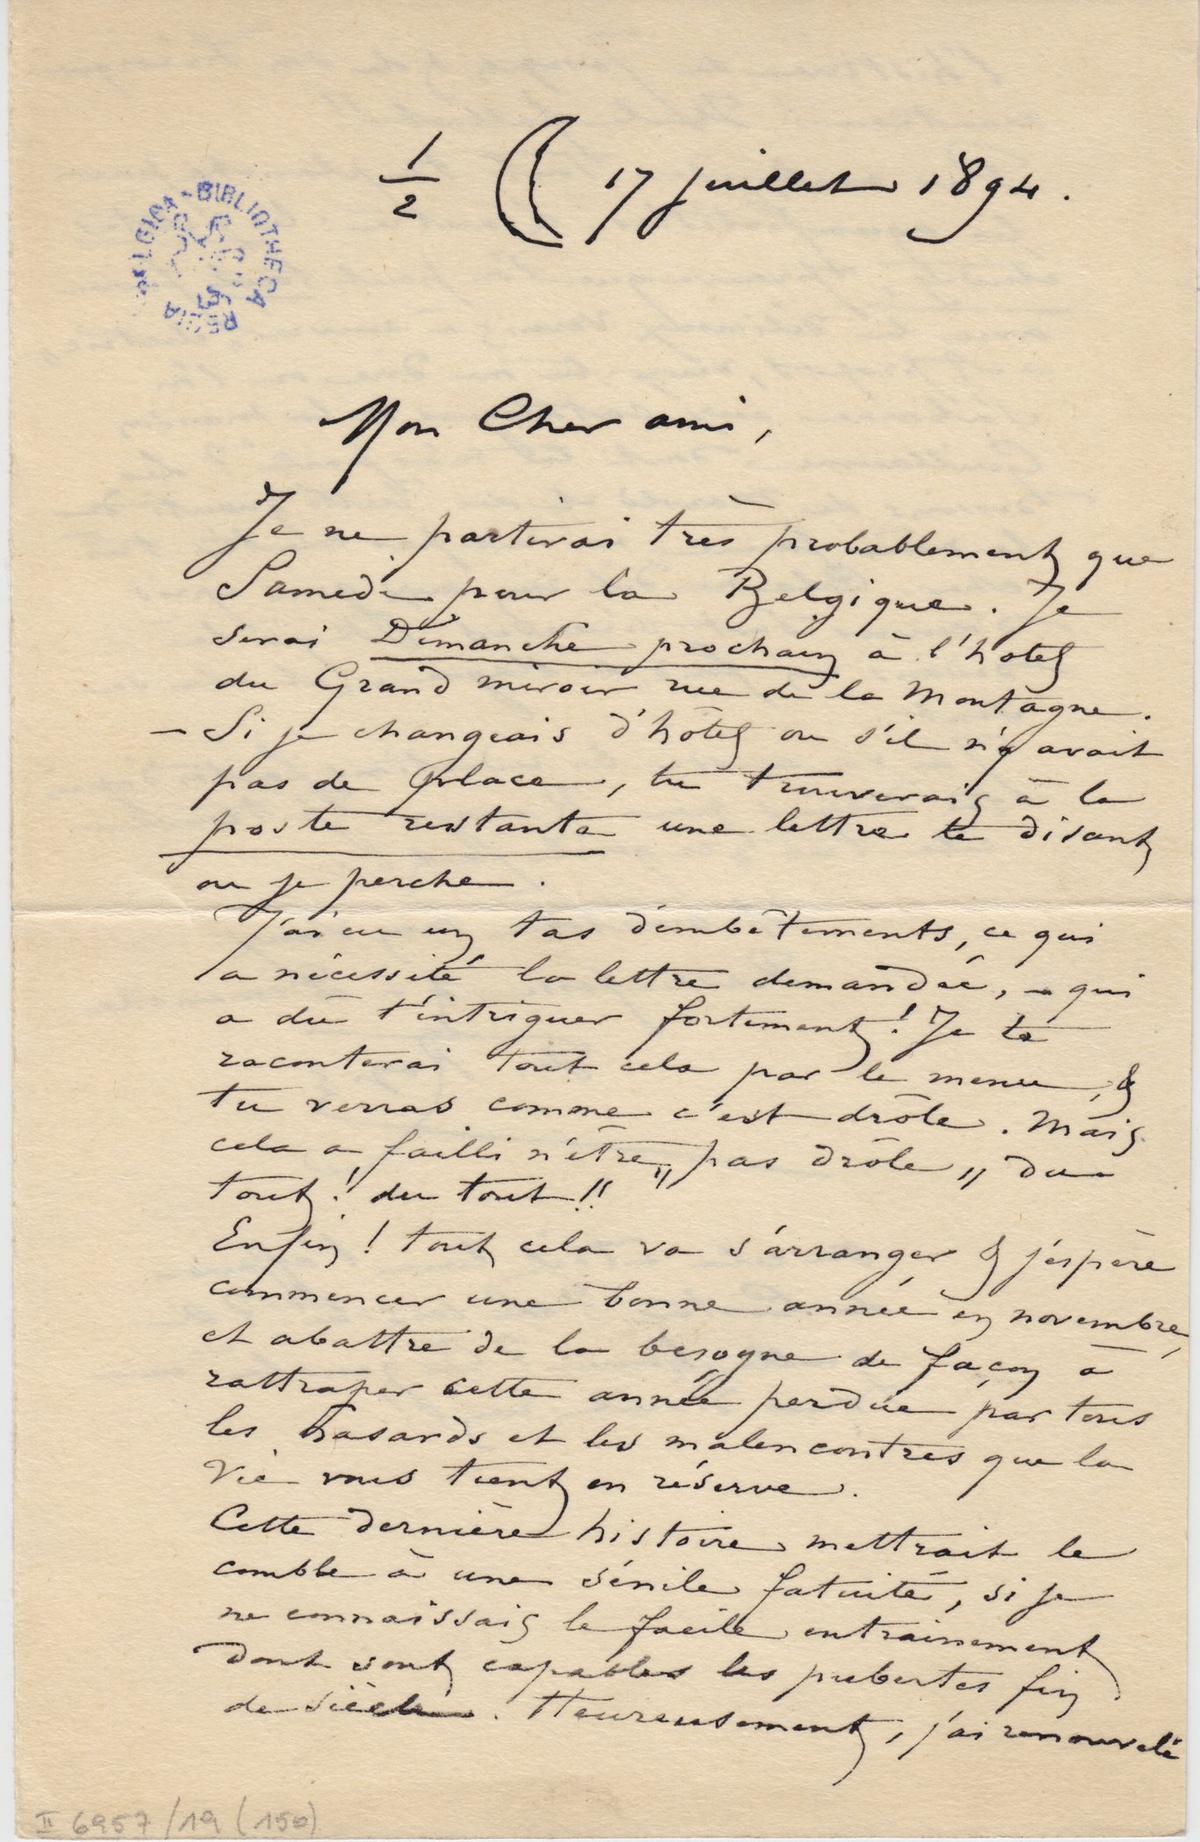 1/2 ( 17 juillet 1894.
BELGICA - BIBLIOTHECA REGIA
Mon Cher ami,
Je ne partirai très probablement que
Samedi pour la Belgique. Je
serai Dimanche prochain à l'hotel
du Grand miroir rue de la Montagne.
— Si je changeais d'hôtel ou s'il n'y avait
pas de place, tu trouverais à la
poste restante une lettre te disant
ou je perche.
J'ai eu un tas d'embêtements, ce qui
a nécessité la lettre demandée, — qui
a dû t'intriguer fortement! Je te
raconterai tout cela par le menu, &
tu verras comme c'est drôle. Mais
cela a failli n'être „pas drôle„ du
tout! du tout!!
Enfin! tout cela va s'arranger & j'espère
commencer une bonne année en novembre,
et abattre de la besogne de façon à
rattraper cette année perdue par tous
les hasards et les malencontres que la
Vie vous tient en réserve.
Cette dernière histoire mettrait le
comble à une sénile fatuité, si je
ne connaissais le facile entrainement
dont sont capables les pubertes fin
de siècle. Heureusement, j'ai renouvelé
II 6957/19 (150)